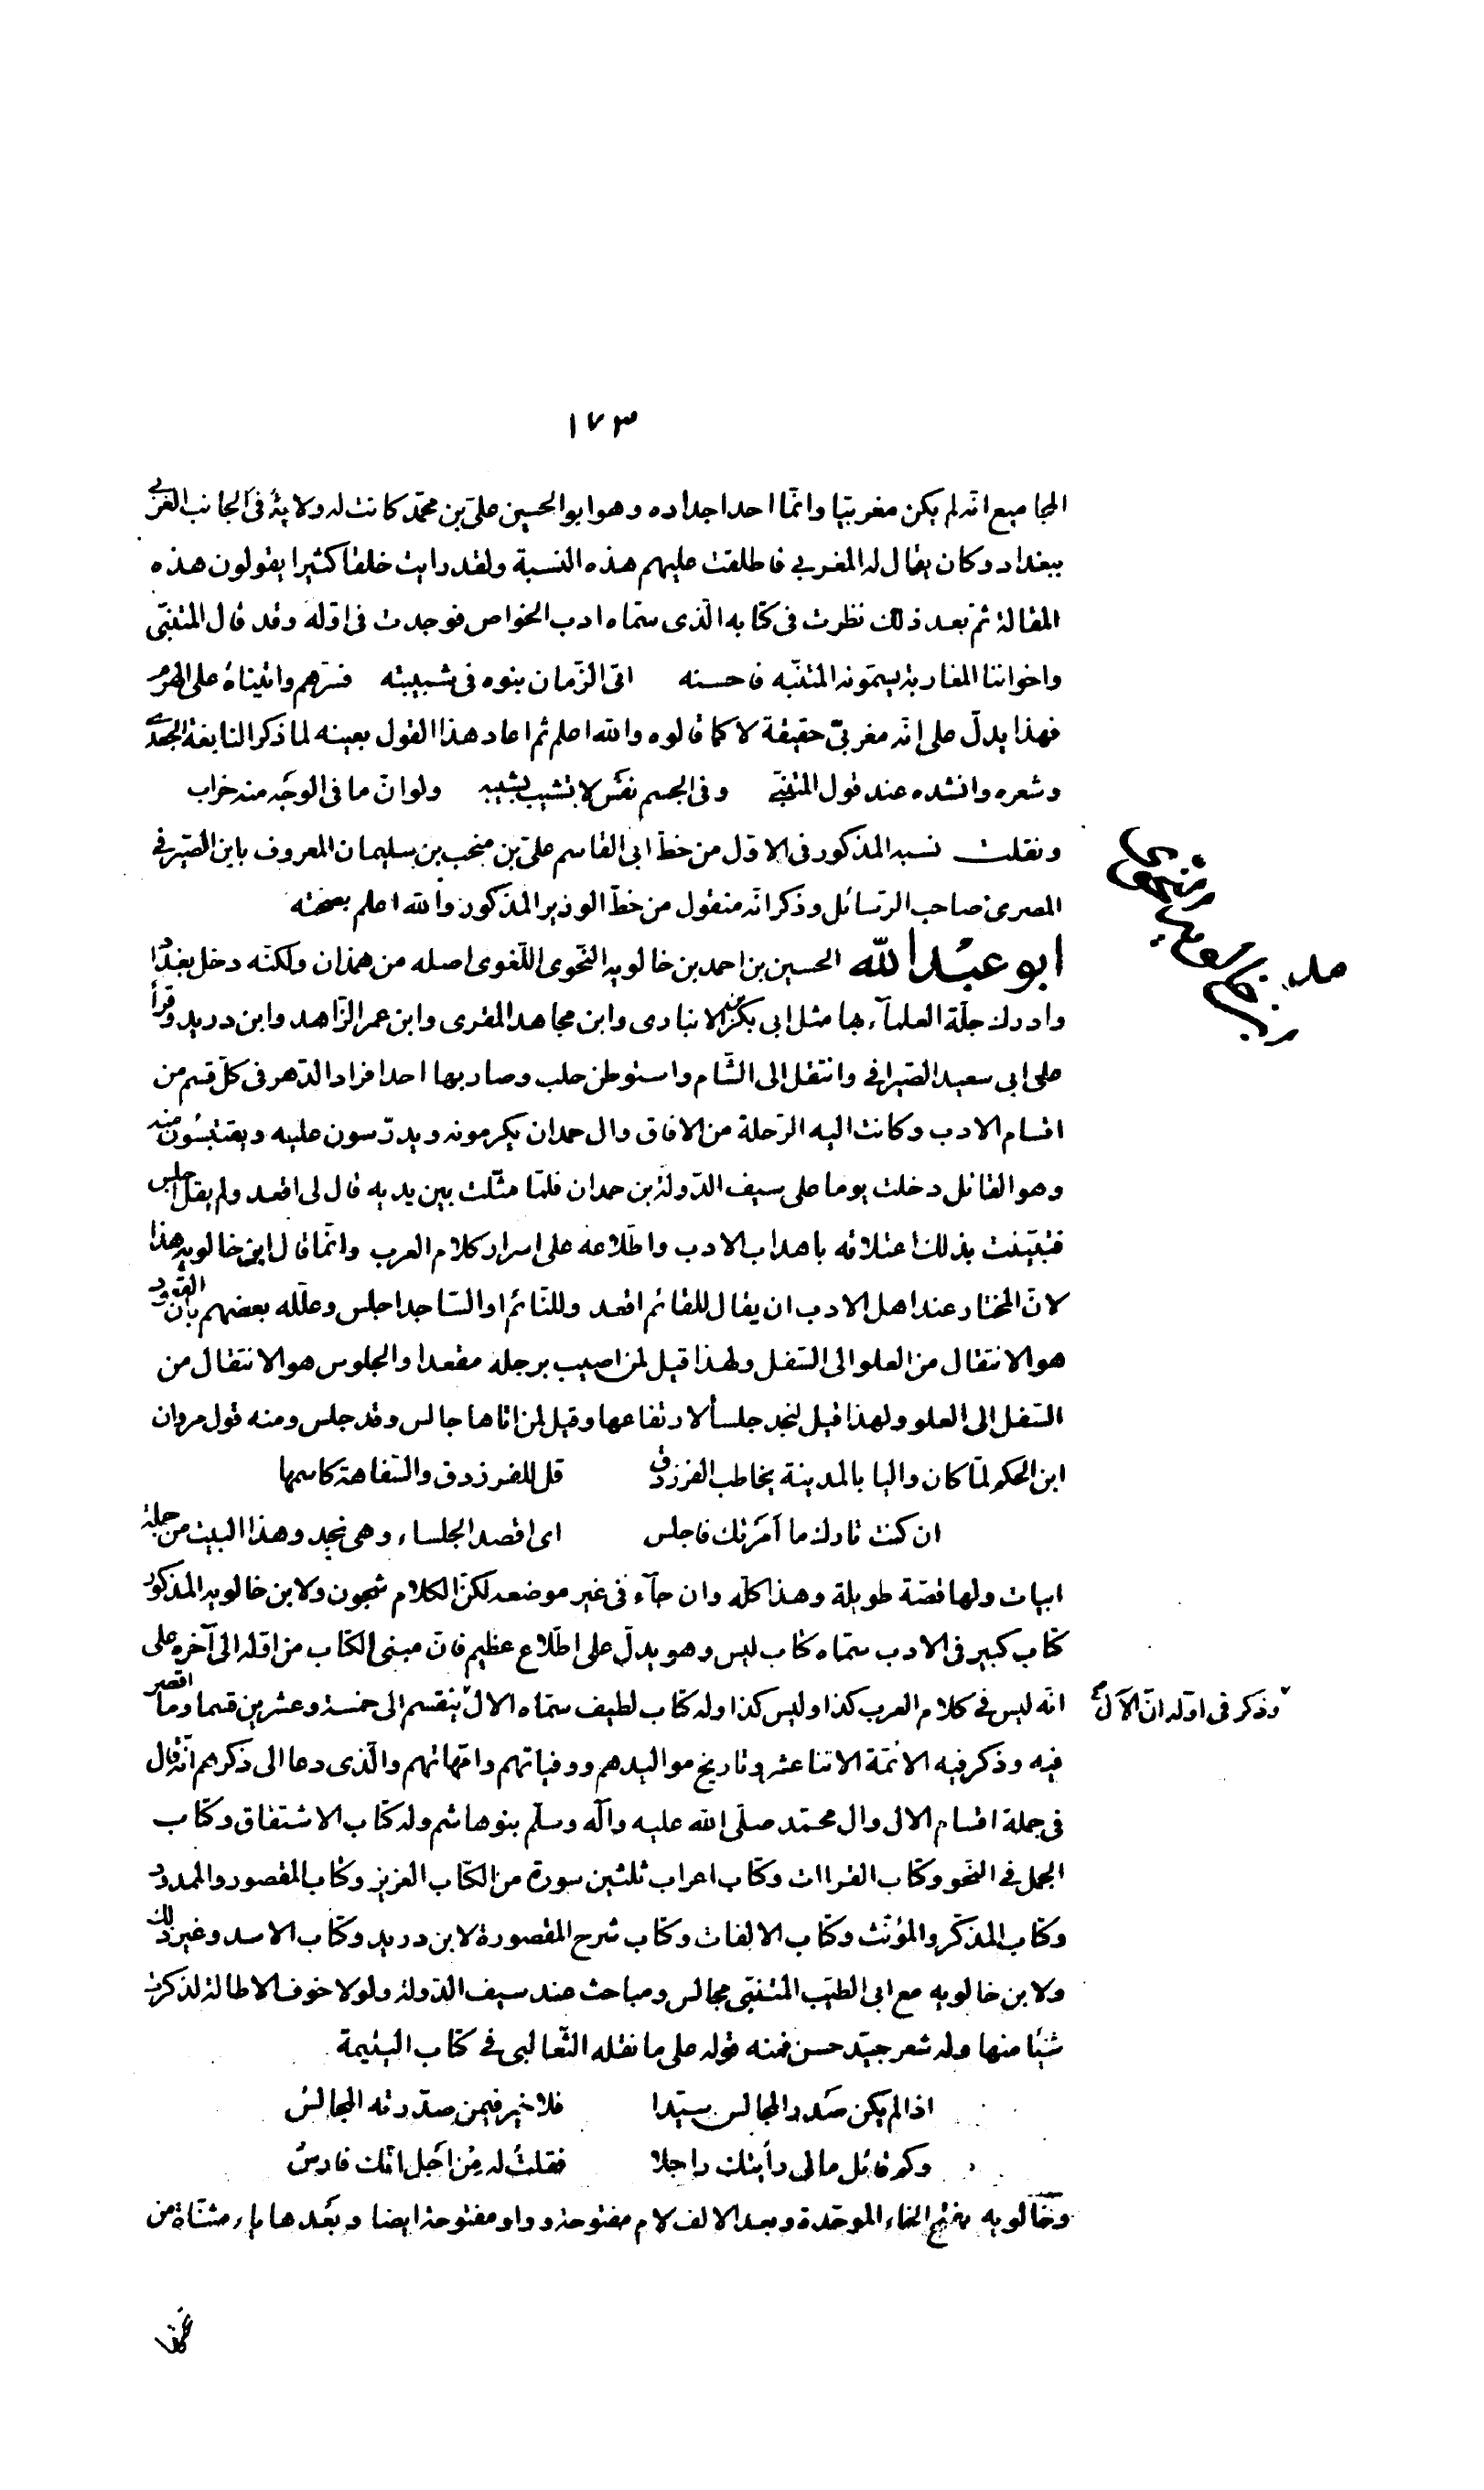 ١٧٣
المجاميع انّه لم يكن مغربيّا وانّما احد اجداده وهو ابو الحسين علىّ بن محمّد كانت له ولاية فى الجانب الغربىّ
ببغداد وكان يقال له المغربى فاطلقت عليهم هذه النسبة ولقد رايت خلقا كثيرا يقولون هذه
المقالة ثمّ بعد ذلك نظرت فى كتابه الّذى سمّاه ادب الخواص فوجدت فى اوّله وقد قال المتنبّى
واخواننا المغاربة يسمّونه المتنبّه فاحسنه اتى الزّمان بنوه فى شبيبته فسرّهم واتيناه على الهرم
فهذا يدلّ على انّه مغربىّ حقيقة لا كما قالوه والله اعلم ثم اعاد هذا القول بعينه لما ذكر النابغة الجعدى
وشعره وانشده عند قول المتنبّى وفى الجسم نفس لا تشيب بشيبه ولو انّ ما فى الوجه منه خراب
ونقلت نسبه المذكور فى الاوّل من خطّ ابى القاسم علىّ بن منجب بن سليمان المعروف بابن الصّيرفى
المصرى صاحب الرّسائل وذكر انّه منقول من خطّ الوزير المذكور والله اعلم بصحّته
ابو عبد الله الحسين بن احمد بن خالويه النّحوى اللّغوى اصله من همذان ولكنّه دخل بغداد
وادرك جلّة العلمآء بها مثل ابى بكر بن الانبارى وابن مجاهد المقرى وابن عمر الزّاهد وابن دريد وقرأ
على ابى سعيد الصّيرافى وانتقل الى الشّام واستوطن حلب وصار بها احد افراد الدّهر فى كلّ قسم من
اقسام الادب وكانت اليه الرّحلة من الافاق وال حمدان يكرمونه ويدرّسون عليه ويقتبسون منه
وهو القائل دخلت يوما على سيف الدّولة بن حمدان فلمّا مثّلت بين يديه قال لى اقعد ولم يقل اجلس
فتبيّنت بذلك اعتلاقه باهداب الادب واطّلاعه على اسرار كلام العرب وانّما قال ابن خالويه هذا
لانّ المختار عند اهل الادب ان يقال للقائم اقعد وللنّائم او السّاجد اجلس وعلّله بعضهم بانّ القعود
هو الانتقال من العلو الى السّفل ولهذا قيل لمن اصيب برجله مقعدا والجلوس هو الانتقال من
السّفل الى العلو ولهذا قيل لنجد جلسأ لارتفاعها وقيل لمن اتاها جالس وقد جلس ومنه قول مروان
ابن الحكم لمّا كان واليا بالمدينة يخاطب الفرزدق قل للفرزدق والسّفاهة كاسمها
ان كنت تارك ما أمرتك فاجلس اى اقصد الجلساء وهى نجد وهذا البيت من جملة
ابيات ولها قصّة طويلة وهذا كلّه وان جآء فى غير موضعه لكنّ الكلام شجون ولابن خالويه المذكور
كتاب كبير فى الادب سمّاه كتاب ليس وهو يدلّ على اطّلاع عظيم فانّ مبنى الكتاب من اوّله الى آخره على
انّه ليس فى كلام العرب كذا وليس كذا وله كتاب لطيف سمّاه الال ينقسم الى خمسة وعشرين قسما وما اقصر
وذكر فى اوّله انّ الآل
فيه وذكر فيه الائمّة الاثنا عشر وتاريخ مواليدهم ووفياتهم وامّهاتهم والّذى دعا الى ذكرهم انّه قال
فى جملة اقسام الال وال محمّد صلّى الله عليه وآله وسلّم بنو هاشم وله كتاب الاشتقاق وكتاب
الجمل فى النّحو وكتاب القراات وكتاب اعراب ثلثين سورة من الكتاب العزيز وكتاب المقصور والممدود
وكتاب المذكّر والمؤنّث وكتاب الالفات وكتاب شرح المقصورة لابن دريد وكتاب الاسد وغير ذلك
ولابن خالويه مع ابى الطيّب المتنبّى مجالس ومباحث عند سيف الدّولة ولولا خوف الاطالة لذكرت
شيئا منها وله شعر جيّد حسن فمنه قوله على ما نقله الثّعالبى فى كتاب اليتيمة
اذا لم يكن صدر المجالس سيّدا فلا خير فيمن صدّرته المجالس
وكم قائل مالى رأيتك راجلا فقلت له من اجل انّك فارس
وخالويه بفتح الخاء الموحّدة وبعد الالف لام مفتوحة وواو مفتوحة ايضا وبعدها ياء مثنّاة من